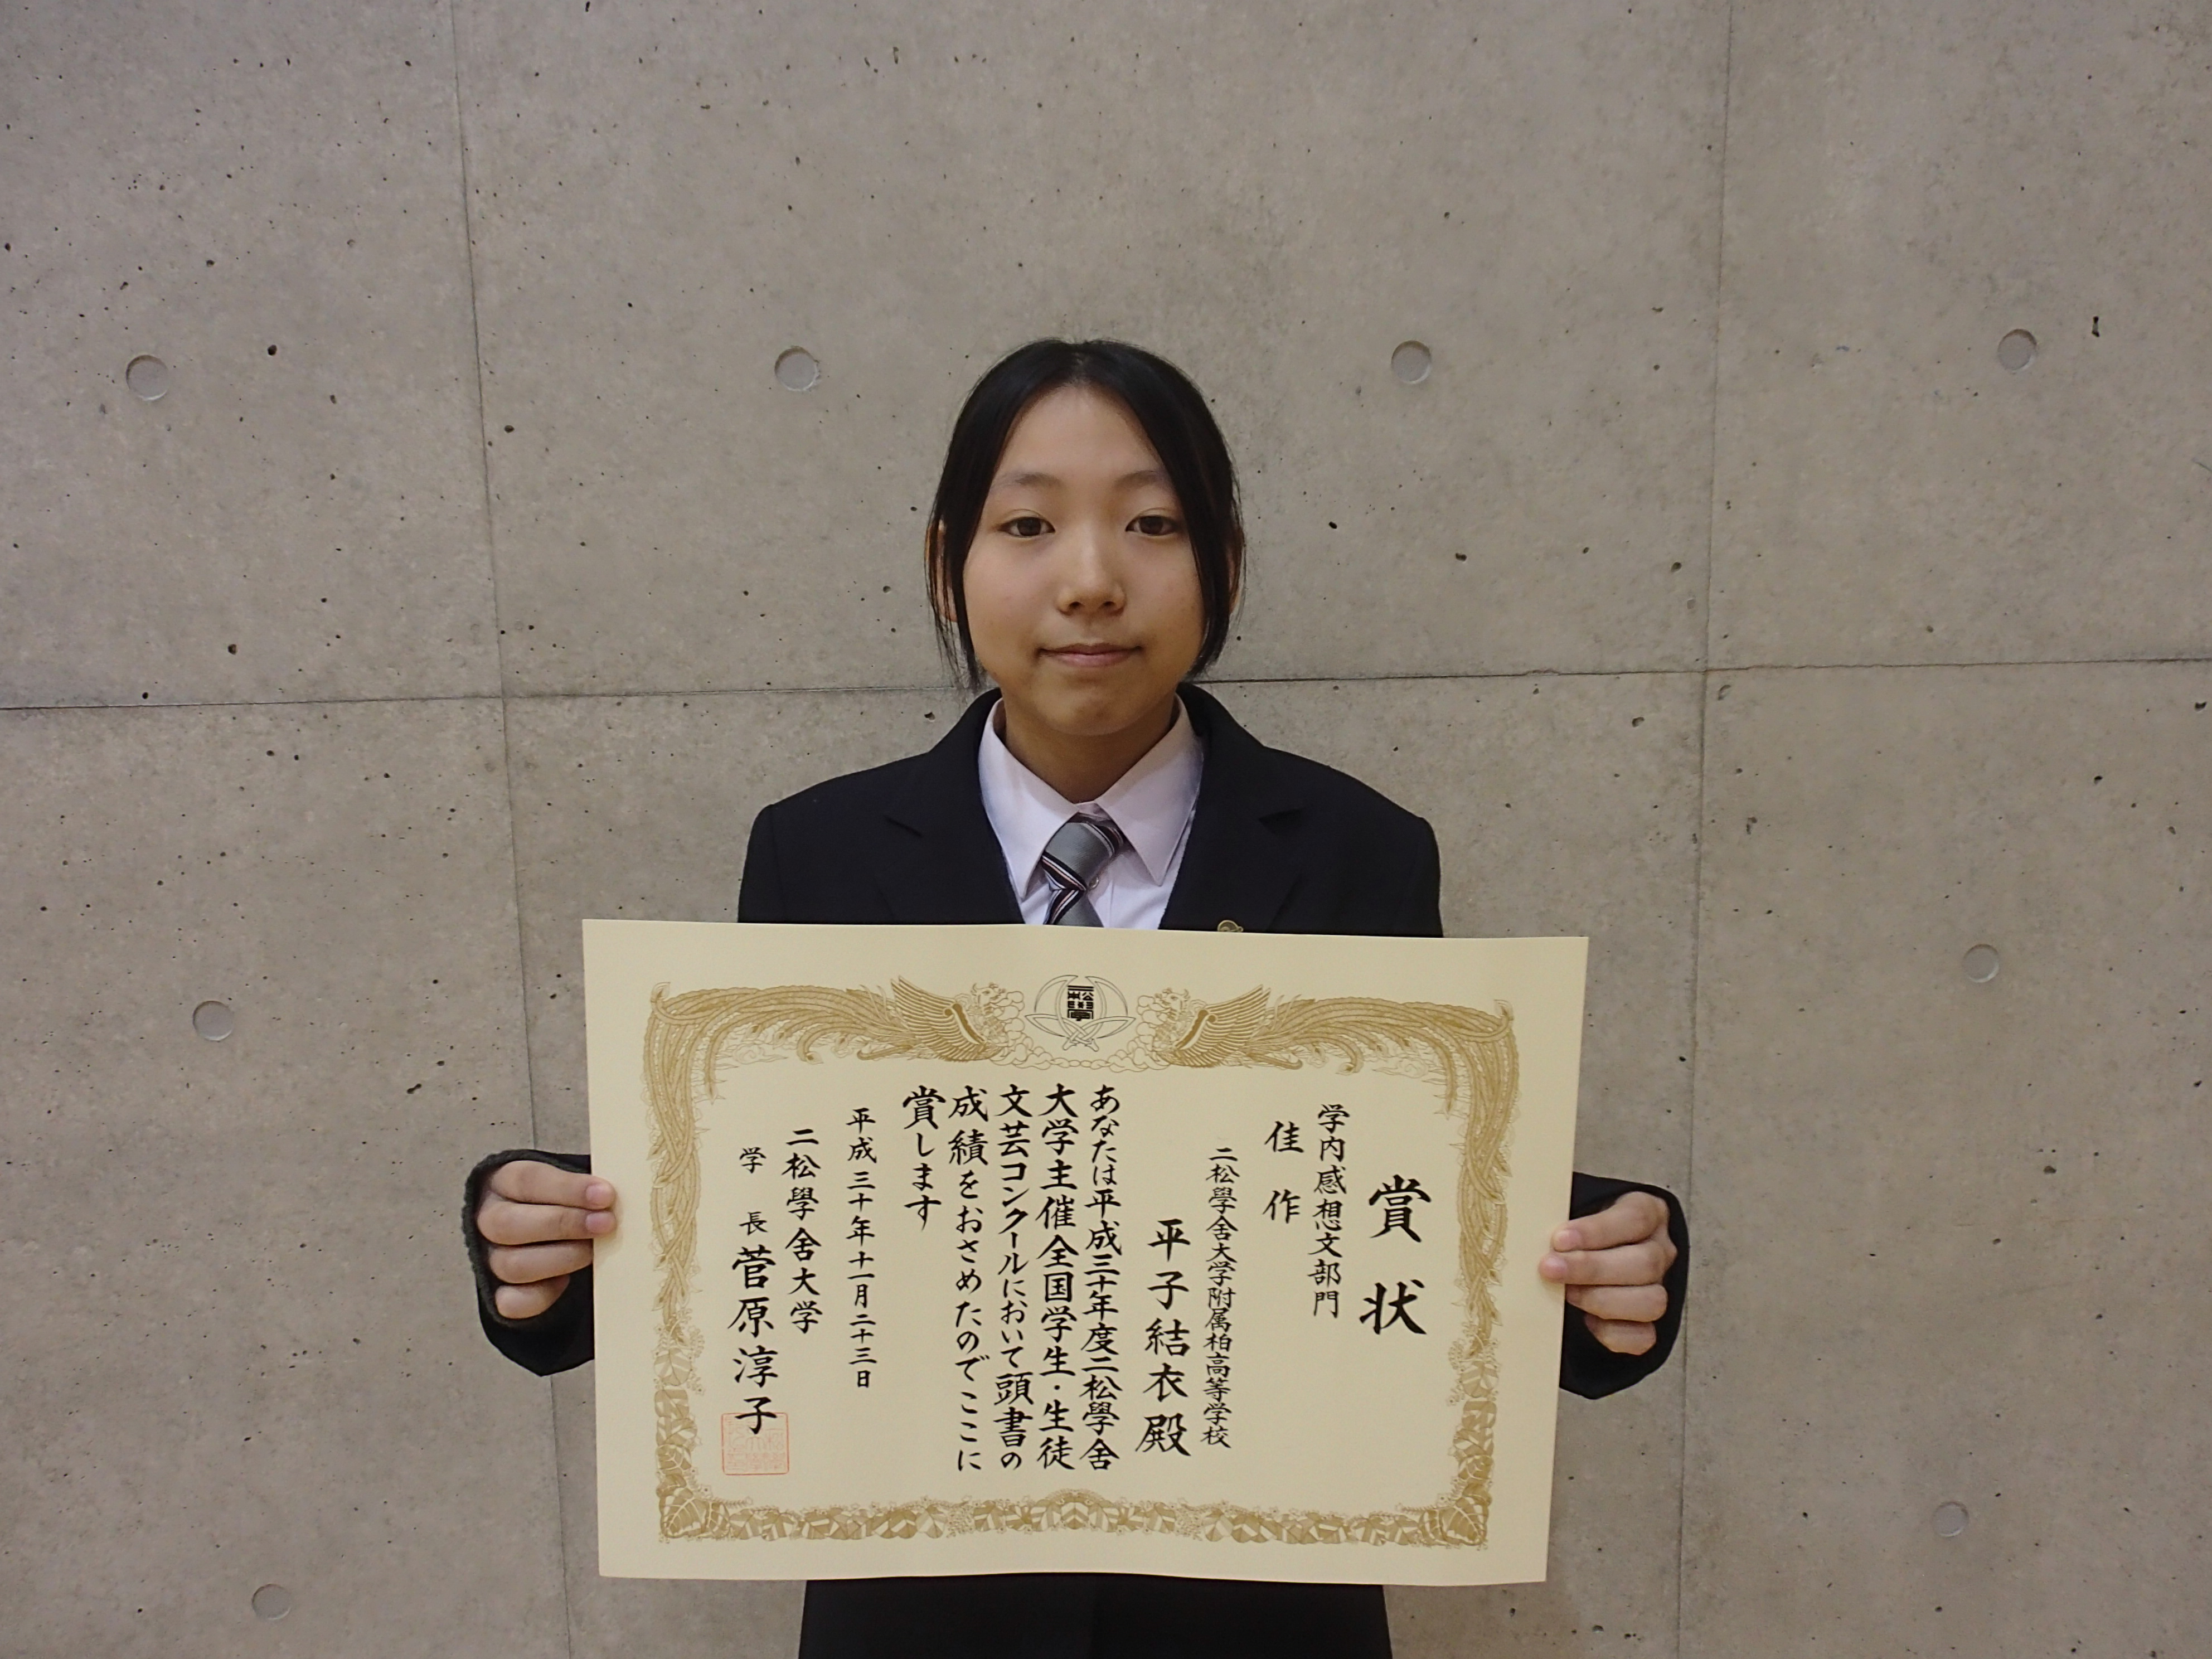 賞状
学内感想文部門
佳作
二松學舎大学附属柏高等学校
平子結衣殿
あなたは平成三十年度二松學舎
大学主催全国学生・生徒
文芸コンクールにおいて頭書の
成績をおさめたのでここに
賞します
平成三十年十一月二十三日
二松學舎大学
学長菅原淳子